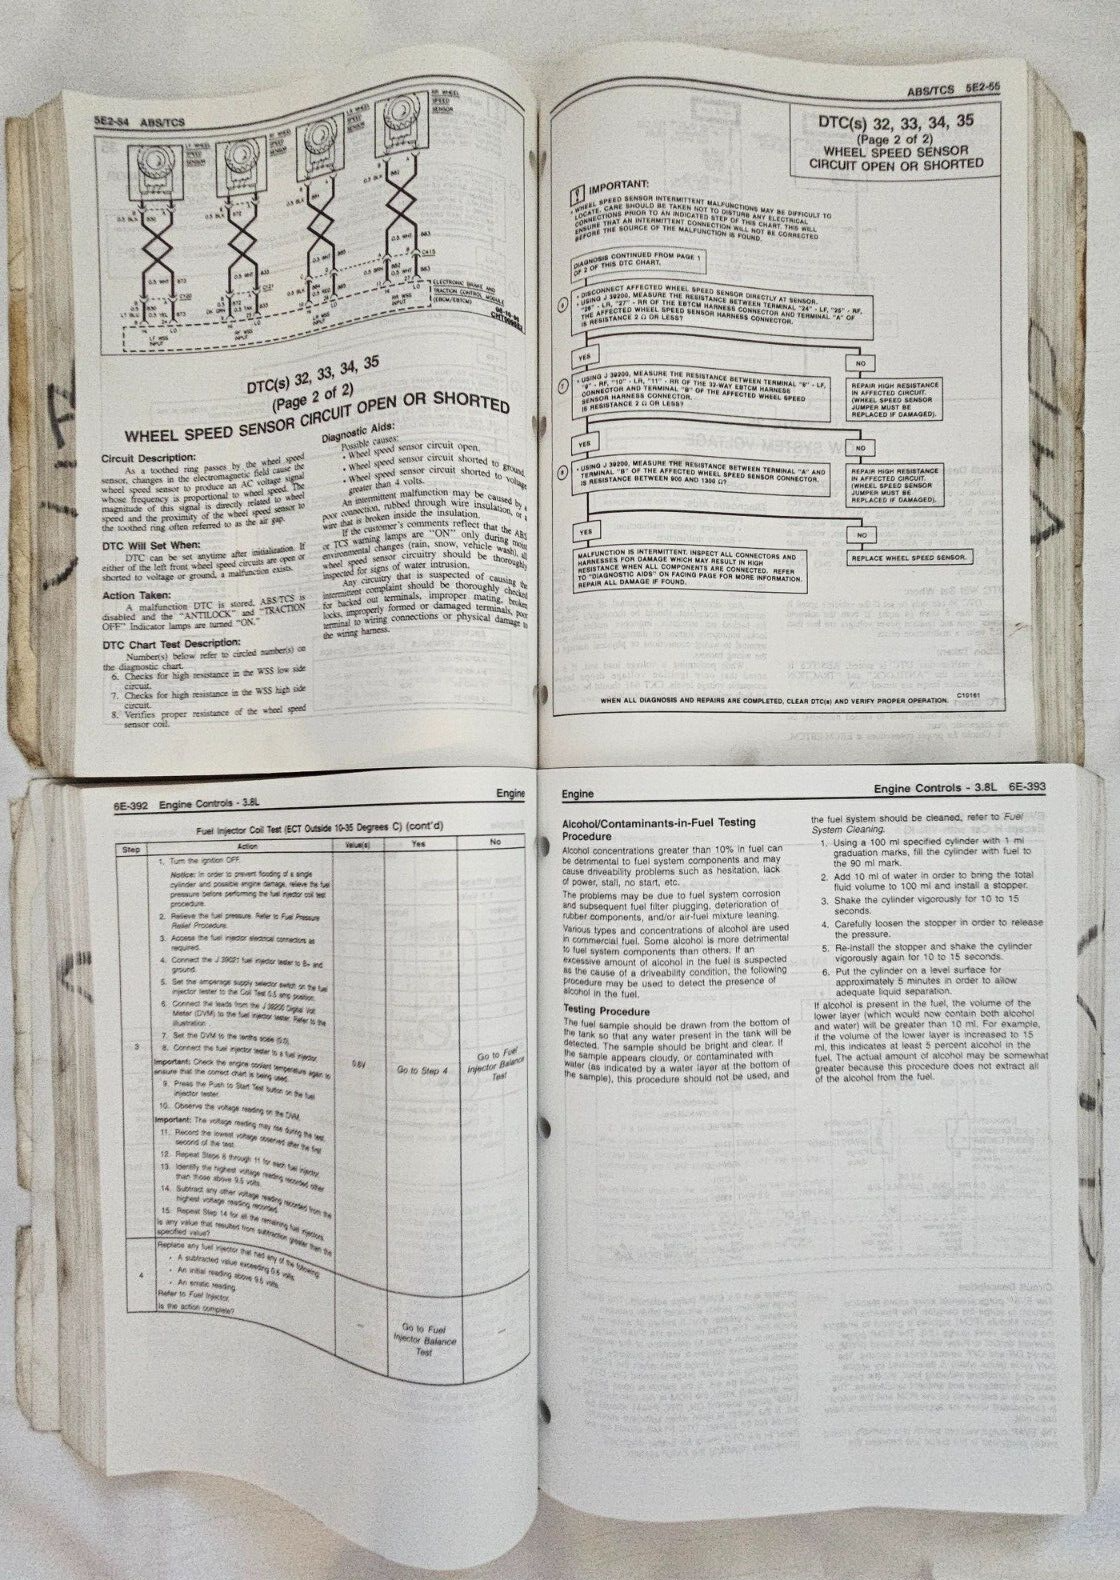 5E2-54 ABS/TCS
LT WHEEL
SPEED
SENSOR
RT WHEEL
SPEED
SENSOR
LR WHEEL
SPEED
SENSOR
RR WHEEL
SPEED
SENSOR
ELECTRONIC BRAKE AND
TRACTION CONTROL MODULE
(EBCM/EBTCM)
LT WSS
INPUT
RT WSS
INPUT
LR WSS
INPUT
RR WSS
INPUT
DTC(s) 32, 33, 34, 35
(Page 2 of 2)
WHEEL SPEED SENSOR CIRCUIT OPEN OR SHORTED
Circuit Description:
As a toothed ring passes by the wheel speed
sensor, changes in the electromagnetic field cause the
wheel speed sensor to produce an AC voltage signal
whose frequency is proportional to wheel speed. The
magnitude of this signal is directly related to wheel
speed and the proximity of the wheel speed sensor to
the toothed ring often referred to as the air gap.
DTC Will Set When:
DTC can be set anytime after initialization. If
either of the left front wheel speed circuits are open or
shorted to voltage or ground, a malfunction exists.
Action Taken:
A malfunction DTC is stored, ABS/TCS is
disabled and the "ANTILOCK" and "TRACTION
OFF" Indicator lamps are turned "ON."
DTC Chart Test Description:
Number(s) below refer to circled number(s) on
the diagnostic chart.
6. Checks for high resistance in the WSS low side
circuit.
7. Checks for high resistance in the WSS high side
circuit.
8. Verifies proper resistance of the wheel speed
sensor coil.
Diagnostic Aids:
Possible causes:
• Wheel speed sensor circuit open.
• Wheel speed sensor circuit shorted to ground.
• Wheel speed sensor circuit shorted to voltage
greater than 4 volts.
An intermittent malfunction may be caused by a
poor connection, rubbed through wire insulation, or a
wire that is broken inside the insulation.
If the customer's comments reflect that the ABS
or TCS warning lamps are "ON" only during moist
environmental changes (rain, snow, vehicle wash), all
wheel speed sensor circuitry should be thoroughly
inspected for signs of water intrusion.
Any circuitry that is suspected of causing the
intermittent complaint should be thoroughly checked
for backed out terminals, improper mating, broken
locks, improperly formed or damaged terminals, poor
terminal to wiring connections or physical damage to
the wiring harness.
ABS/TCS 5E2-55
DTC(s) 32, 33, 34, 35
(Page 2 of 2)
WHEEL SPEED SENSOR
CIRCUIT OPEN OR SHORTED
IMPORTANT:
• WHEEL SPEED SENSOR INTERMITTENT MALFUNCTIONS MAY BE DIFFICULT TO
LOCATE. CARE SHOULD BE TAKEN NOT TO DISTURB ANY ELECTRICAL
CONNECTIONS PRIOR TO AN INDICATED STEP OF THIS CHART. THIS WILL
ENSURE THAT AN INTERMITTENT CONNECTION WILL NOT BE CORRECTED
BEFORE THE SOURCE OF THE MALFUNCTION IS FOUND.
DIAGNOSIS CONTINUED FROM PAGE 1
OF 2 OF THIS DTC CHART.
6
• DISCONNECT AFFECTED WHEEL SPEED SENSOR DIRECTLY AT SENSOR.
• USING J 39200, MEASURE THE RESISTANCE BETWEEN TERMINAL "24" - LF, "25" - RF,
"26" - LR, "27" - RR OF THE EBTCM HARNESS CONNECTOR AND TERMINAL "A" OF
THE AFFECTED WHEEL SPEED SENSOR HARNESS CONNECTOR.
IS RESISTANCE 2 Ω OR LESS?
YES
NO
7
• USING J 39200, MEASURE THE RESISTANCE BETWEEN TERMINAL "8" - LF,
"9" - RF, "10" - LR, "11" - RR OF THE 32-WAY EBTCM HARNESS
CONNECTOR AND TERMINAL "B" OF THE AFFECTED WHEEL SPEED
SENSOR HARNESS CONNECTOR.
IS RESISTANCE 2 Ω OR LESS?
REPAIR HIGH RESISTANCE
IN AFFECTED CIRCUIT.
(WHEEL SPEED SENSOR
JUMPER MUST BE
REPLACED IF DAMAGED).
YES
NO
8
• USING J 39200, MEASURE THE RESISTANCE BETWEEN TERMINAL "A" AND
TERMINAL "B" OF THE AFFECTED WHEEL SPEED SENSOR CONNECTOR.
IS RESISTANCE BETWEEN 900 AND 1300 Ω?
REPAIR HIGH RESISTANCE
IN AFFECTED CIRCUIT.
(WHEEL SPEED SENSOR
JUMPER MUST BE
REPLACED IF DAMAGED).
YES
NO
MALFUNCTION IS INTERMITTENT. INSPECT ALL CONNECTORS AND
HARNESSES FOR DAMAGE WHICH MAY RESULT IN HIGH
RESISTANCE WHEN ALL COMPONENTS ARE CONNECTED. REFER
TO "DIAGNOSTIC AIDS" ON FACING PAGE FOR MORE INFORMATION.
REPAIR ALL DAMAGE IF FOUND.
REPLACE WHEEL SPEED SENSOR.
C10161
WHEN ALL DIAGNOSIS AND REPAIRS ARE COMPLETED, CLEAR DTC(s) AND VERIFY PROPER OPERATION.
6E-392 Engine Controls - 3.8L Engine
Fuel Injector Coil Test (ECT Outside 10-35 Degrees C) (cont'd)
Step Action Value(s) Yes No
3
1. Turn the ignition OFF.
Notice: In order to prevent flooding of a single
cylinder and possible engine damage, relieve the fuel
pressure before performing the fuel injector coil test
procedure.
2. Relieve the fuel pressure. Refer to Fuel Pressure
Relief Procedure.
3. Access the fuel injector electrical connectors as
required.
4. Connect the J 39021 fuel injector tester to B+ and
ground.
5. Set the amperage supply selector switch on the fuel
injector tester to the Coil Test 0.5 amp position.
6. Connect the leads from the J 39200 Digital Volt
Meter (DVM) to the fuel injector tester. Refer to the
illustration.
7. Set the DVM to the tenths scale (0.0).
8. Connect the fuel injector tester to a fuel injector.
Important: Check the engine coolant temperature again to
ensure that the correct chart is being used.
9. Press the Push to Start Test button on the fuel
injector tester.
10. Observe the voltage reading on the DVM.
Important: The voltage reading may rise during the test.
11. Record the lowest voltage observed after the first
second of the test.
12. Repeat Steps 8 through 11 for each fuel injector.
13. Identify the highest voltage reading recorded other
than those above 9.5 volts.
14. Subtract any other voltage reading recorded from the
highest voltage reading recorded.
15. Repeat Step 14 for all the remaining fuel injectors.
Is any value that resulted from subtraction greater than the
specified value?
0.6V
Go to Step 4
Go to Fuel
Injector Balance
Test
4
Replace any fuel injector that had any of the following:
• A subtracted value exceeding 0.6 volts.
• An initial reading above 9.5 volts.
• An erratic reading.
Refer to Fuel Injector.
Is the action complete?
—
Go to Fuel
Injector Balance
Test
—
Engine Engine Controls - 3.8L 6E-393
Alcohol/Contaminants-in-Fuel Testing
Procedure
Alcohol concentrations greater than 10% in fuel can
be detrimental to fuel system components and may
cause driveability problems such as hesitation, lack
of power, stall, no start, etc.
The problems may be due to fuel system corrosion
and subsequent fuel filter plugging, deterioration of
rubber components, and/or air-fuel mixture leaning.
Various types and concentrations of alcohol are used
in commercial fuel. Some alcohol is more detrimental
to fuel system components than others. If an
excessive amount of alcohol in the fuel is suspected
as the cause of a driveability condition, the following
procedure may be used to detect the presence of
alcohol in the fuel.
Testing Procedure
The fuel sample should be drawn from the bottom of
the tank so that any water present in the tank will be
detected. The sample should be bright and clear. If
the sample appears cloudy, or contaminated with
water (as indicated by a water layer at the bottom of
the sample), this procedure should not be used, and
the fuel system should be cleaned, refer to Fuel
System Cleaning.
1. Using a 100 ml specified cylinder with 1 ml
graduation marks, fill the cylinder with fuel to
the 90 ml mark.
2. Add 10 ml of water in order to bring the total
fluid volume to 100 ml and install a stopper.
3. Shake the cylinder vigorously for 10 to 15
seconds.
4. Carefully loosen the stopper in order to release
the pressure.
5. Re-install the stopper and shake the cylinder
vigorously again for 10 to 15 seconds.
6. Put the cylinder on a level surface for
approximately 5 minutes in order to allow
adequate liquid separation.
If alcohol is present in the fuel, the volume of the
lower layer (which would now contain both alcohol
and water) will be greater than 10 ml. For example,
if the volume of the lower layer is increased to 15
ml, this indicates at least 5 percent alcohol in the
fuel. The actual amount of alcohol may be somewhat
greater because this procedure does not extract all
of the alcohol from the fuel.